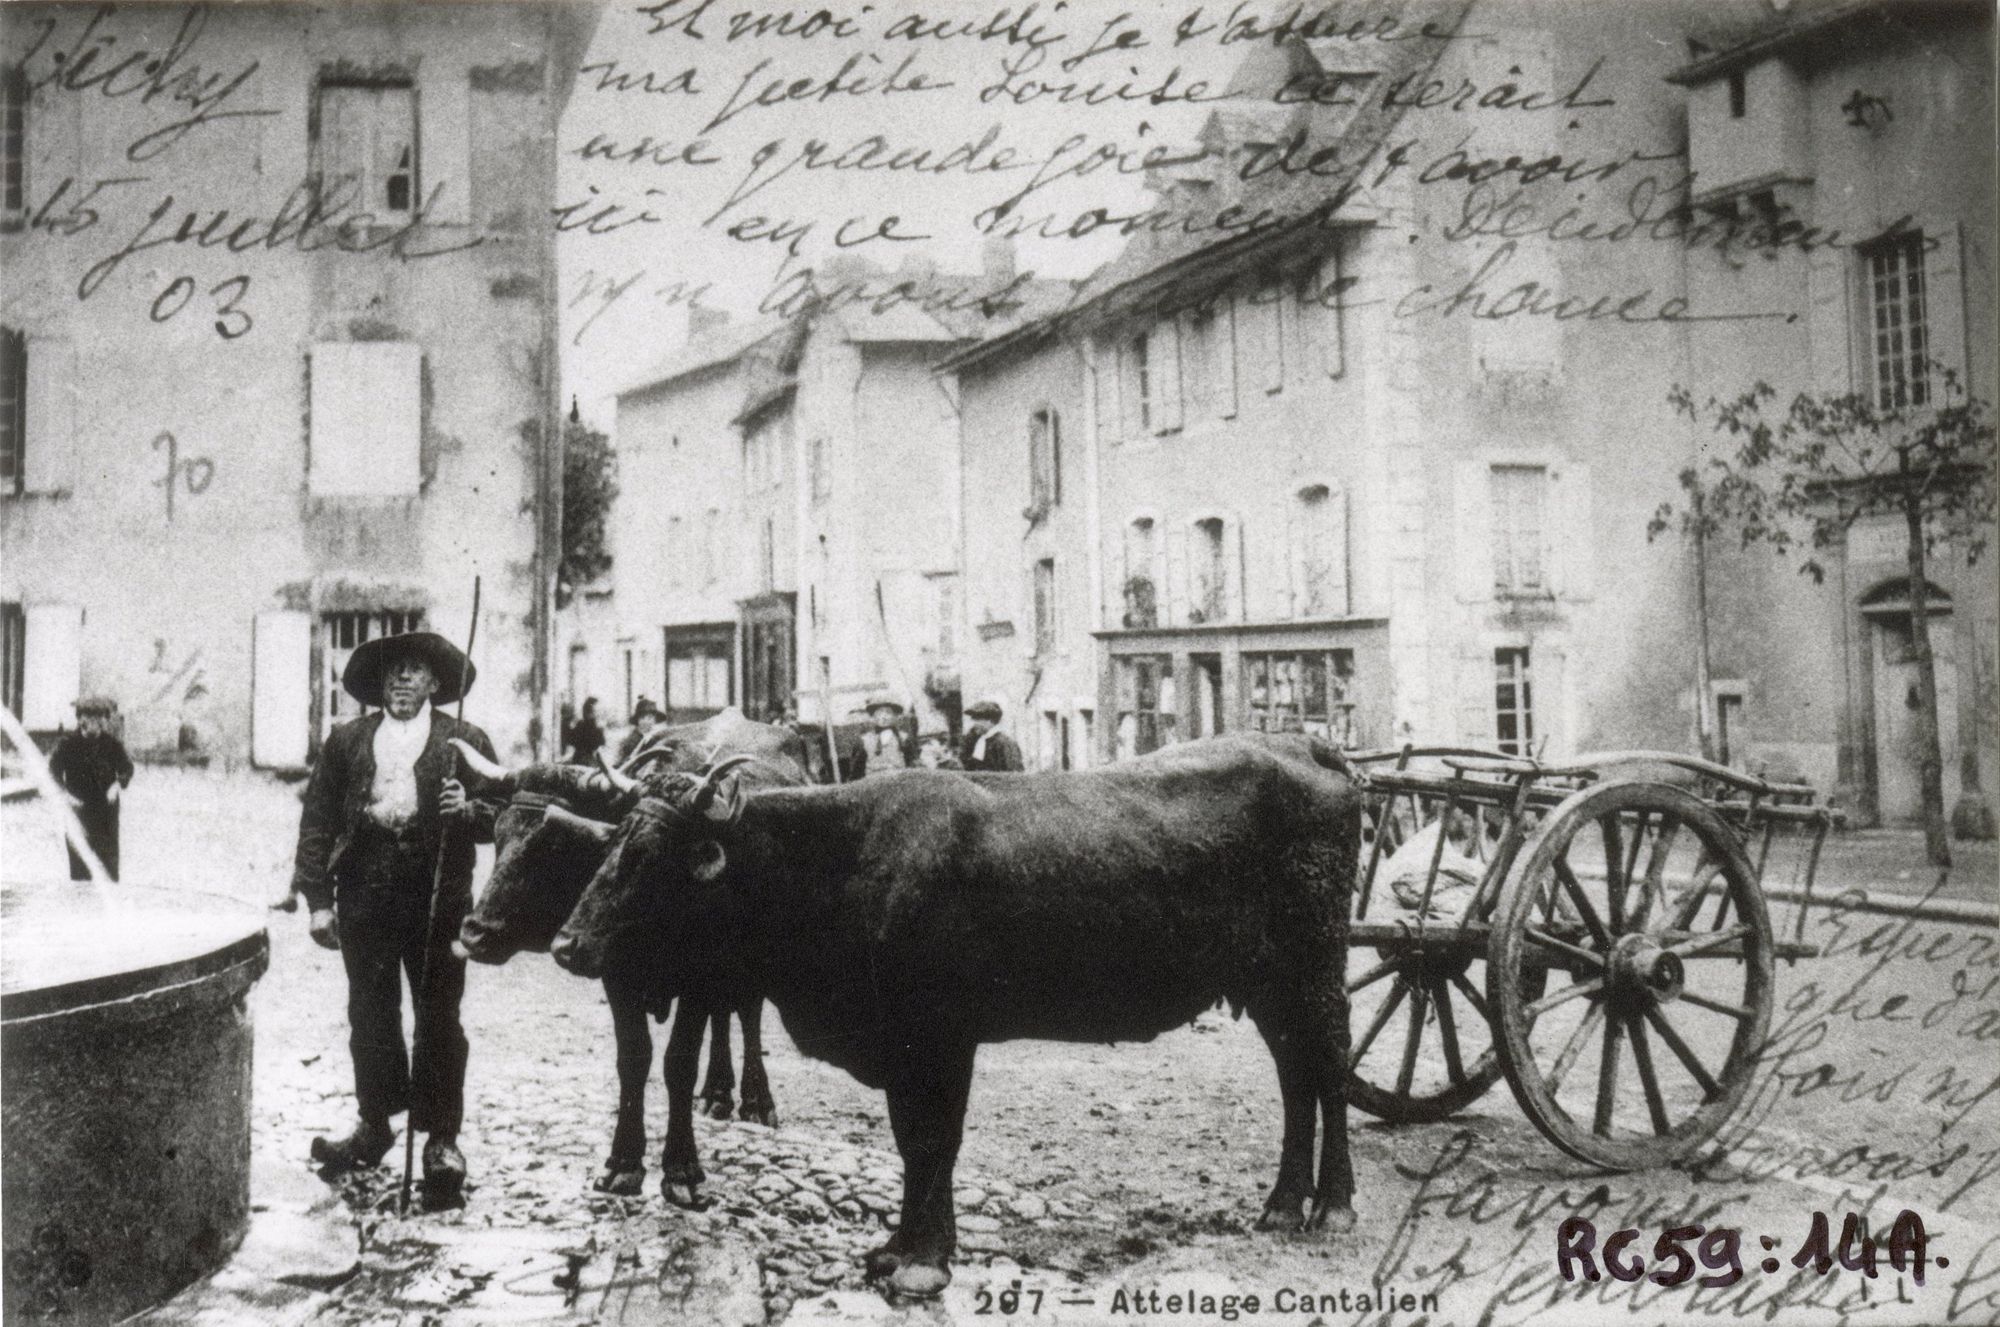 Vichy
15 juillet
03
70
Et moi aussi je t'assure
ma petite Louise ce serait
une grande joie de t'avoir
ici en ce moment. Décidément
n/n avons pas de chance.
que d'a
fois n/
serons
favori
297 — Attelage Cantalien
RC59:14A.